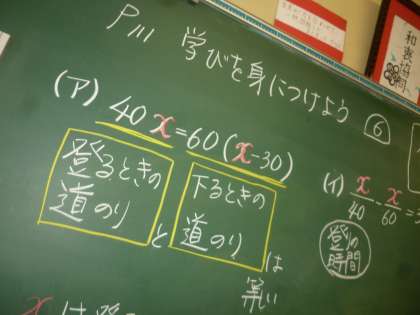 P111 学びを身につけよう ⑥
(ア) 40x=60(x-30)
登るときの
道のり
と
下るときの
道のり
は
等しい
(イ) x/40 - x/60 =
登りの
時間